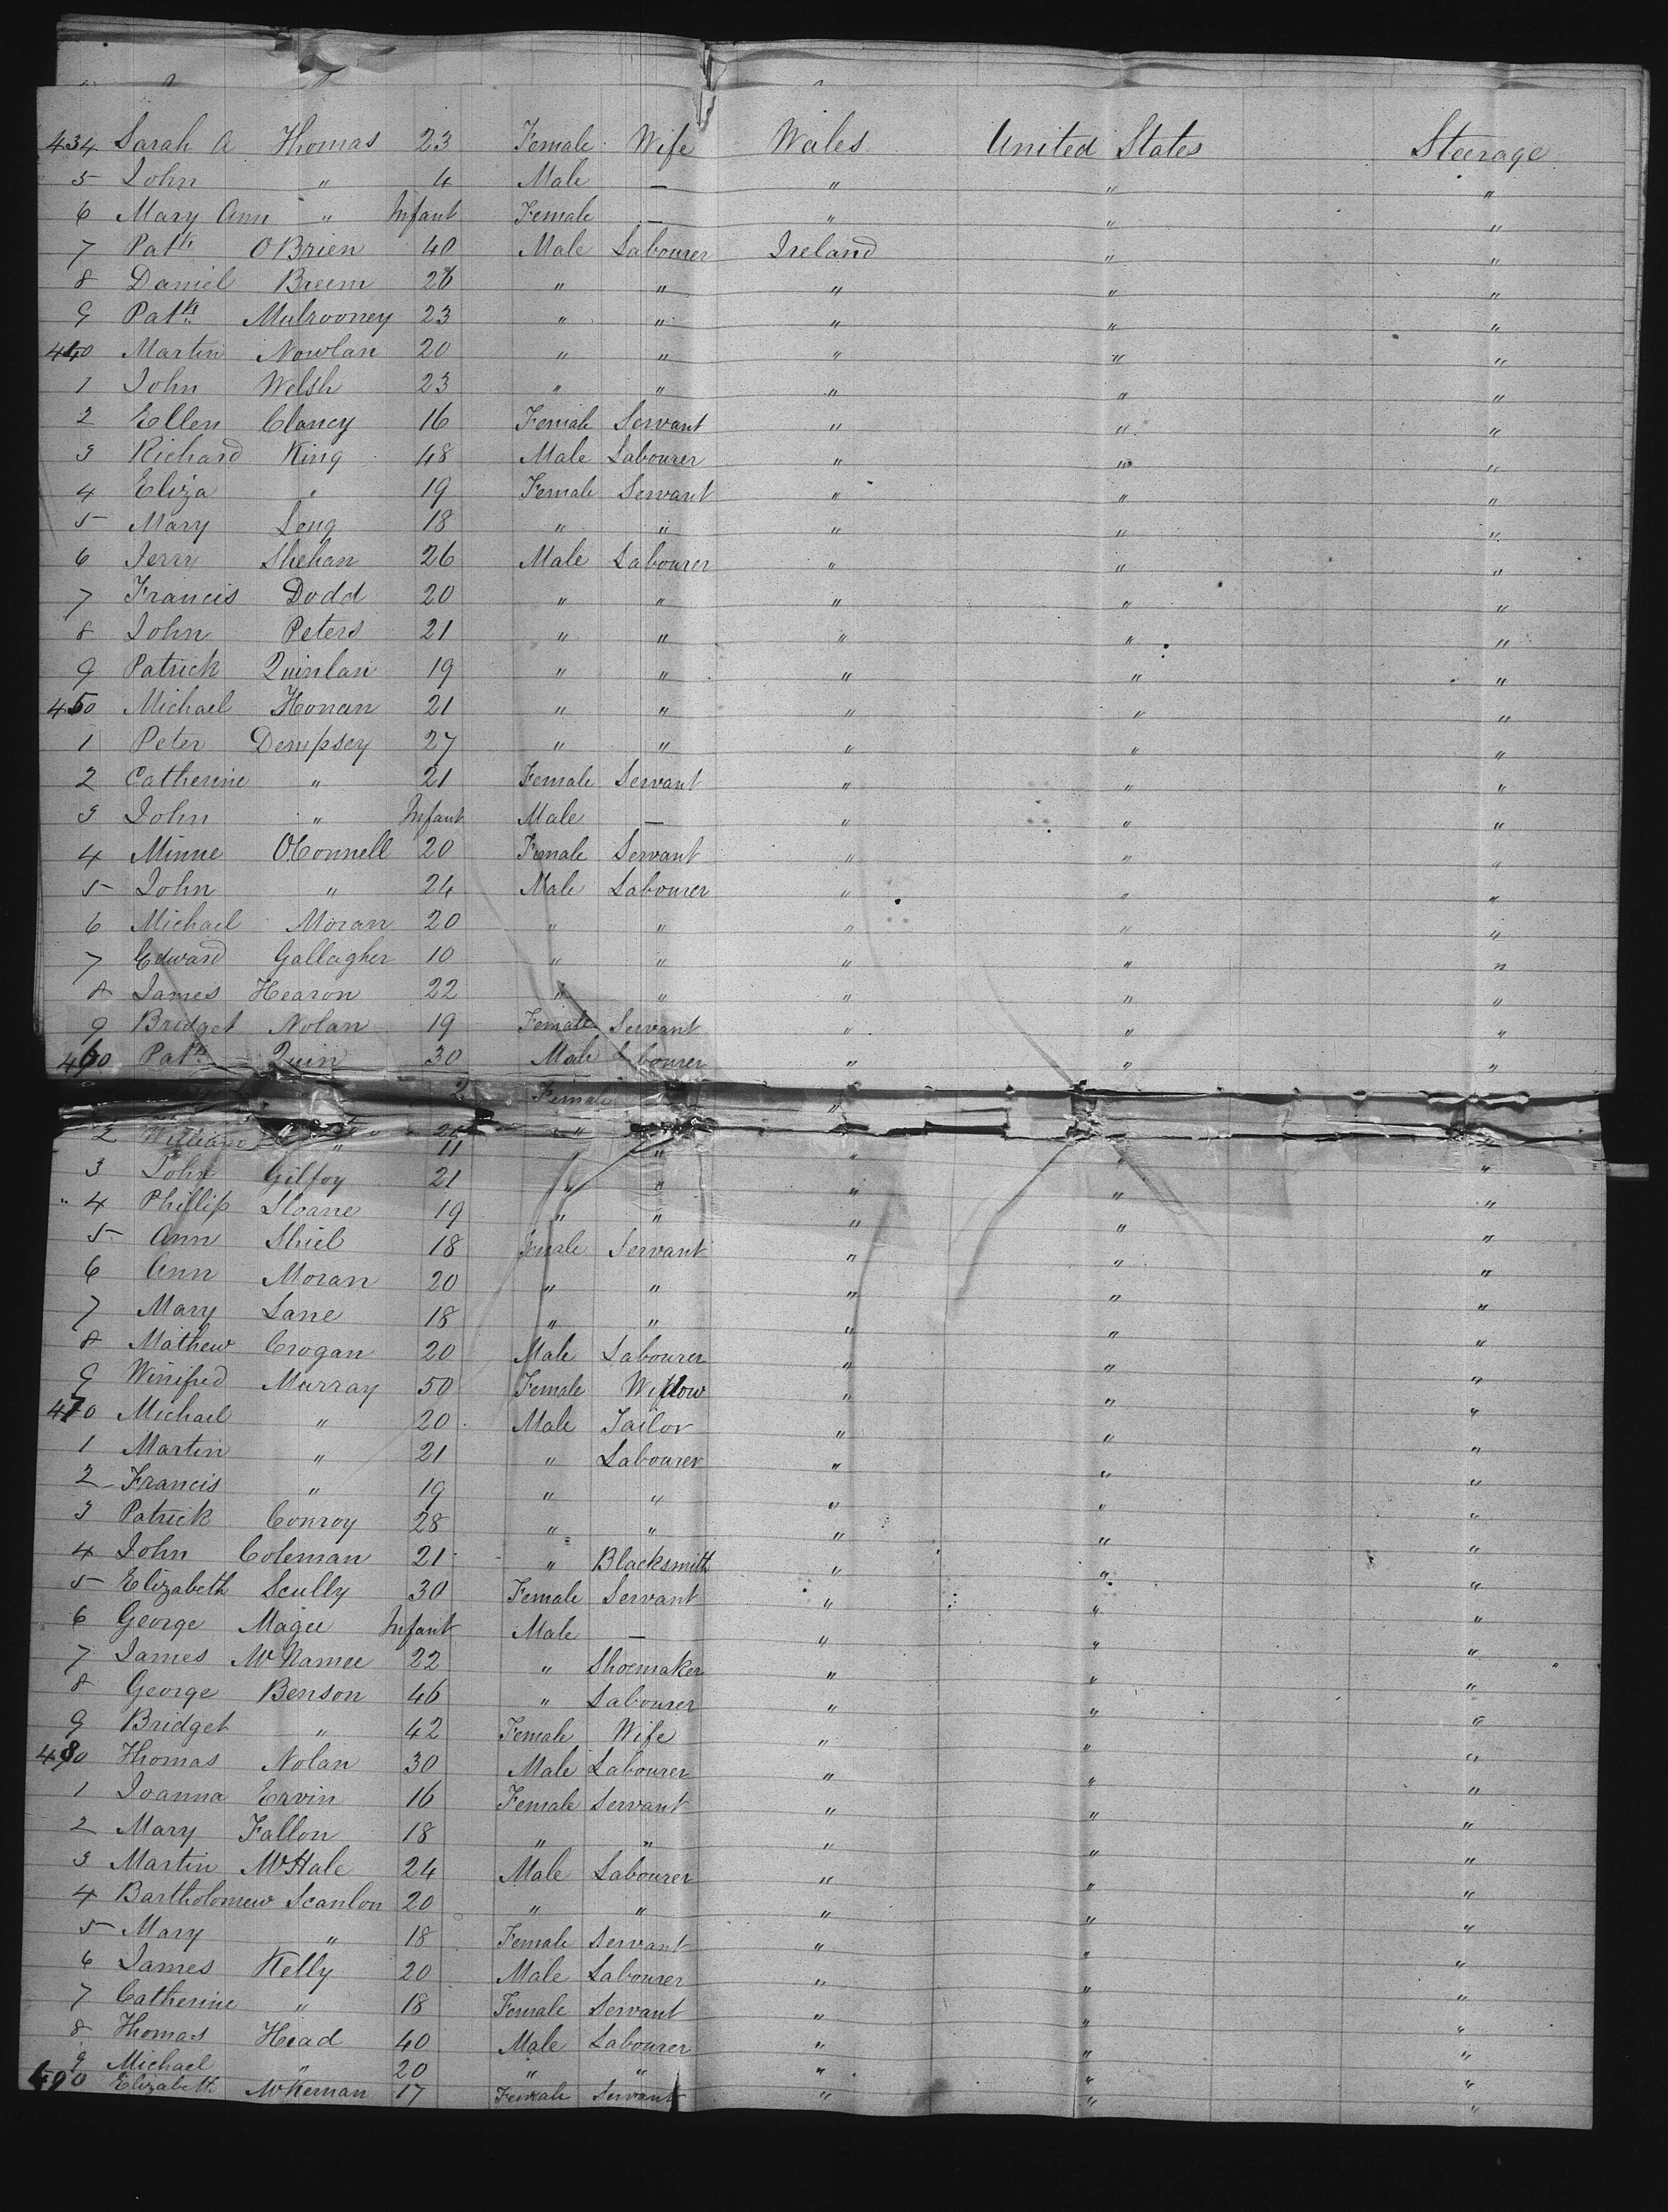 434 Sarah A Thomas 23 Female Wife Wales United States Steerage
5 John " 4 Male — " " "
6 Mary Ann " Infant Female — " " "
7 Patk OBrien 40 Male Labourer Ireland " "
8 Daniel Breem 26 " " " " "
9 Patk Mulrooney 23 " " " " "
440 Martin Nowlan 20 " " " " "
1 John Welsh 23 " " " " "
2 Ellen Clancy 16 Female Servant " " "
3 Richard King 48 Male Labourer " " "
4 Eliza " 19 Female Servant " " "
5 Mary Long 18 " " " " "
6 Jerry Shehan 26 Male Labourer " " "
7 Francis Dodd 20 " " " " "
8 John Peters 21 " " " " "
9 Patrick Quinlan 19 " " " " "
450 Michael Honan 21 " " " " "
1 Peter Dempsey 27 " " " " "
2 Catherine " 21 Female Servant " " "
3 John " Infant Male — " " "
4 Minne OConnell 20 Female Servant " " "
5 John " 24 Male Labourer " " "
6 Michael Moran 20 " " " " "
7 Edward Gallagher 10 " " " " "
8 James Hearon 22 " " " " "
9 Bridget Nolan 19 Female Servant " " "
460 Patk Quin 30 Male Labourer " " "
Female "
2 William " 11 " " " " "
3 John Gilfoy 21 " " " " "
4 Phillip Sloane 19 " " " " "
5 Ann Shiel 18 Female Servant " " "
6 Ann Moran 20 " " " " "
7 Mary Lane 18 " " " " "
8 Mathew Crogan 20 Male Labourer " " "
9 Winifred Murray 50 Female Widow " " "
470 Michael " 20 Male Tailor " " "
1 Martin " 21 " Labourer " " "
2 Francis " 19 " " " " "
3 Patrick Conroy 28 " " " " "
4 John Coleman 21 " Blacksmith " " "
5 Elizabeth Scully 30 Female Servant " " "
6 George Magee Infant Male — " " "
7 James McNamee 22 " Shoemaker " " "
8 George Benson 46 " Labourer " " "
9 Bridget " 42 Female Wife " " "
480 Thomas Nolan 30 Male Labourer " " "
1 Joanna Ervin 16 Female Servant " " "
2 Mary Fallon 18 " " " " "
3 Martin McHale 24 Male Labourer " " "
4 Bartholomew Scanlon 20 " " " " "
5 Mary " 18 Female Servant " " "
6 James Kelly 20 Male Labourer " " "
7 Catherine " 18 Female Servant " " "
8 Thomas Head 40 Male Labourer " " "
9 Michael " 20 " " " " "
490 Elizabeth McKernan 17 Female Servant " " "